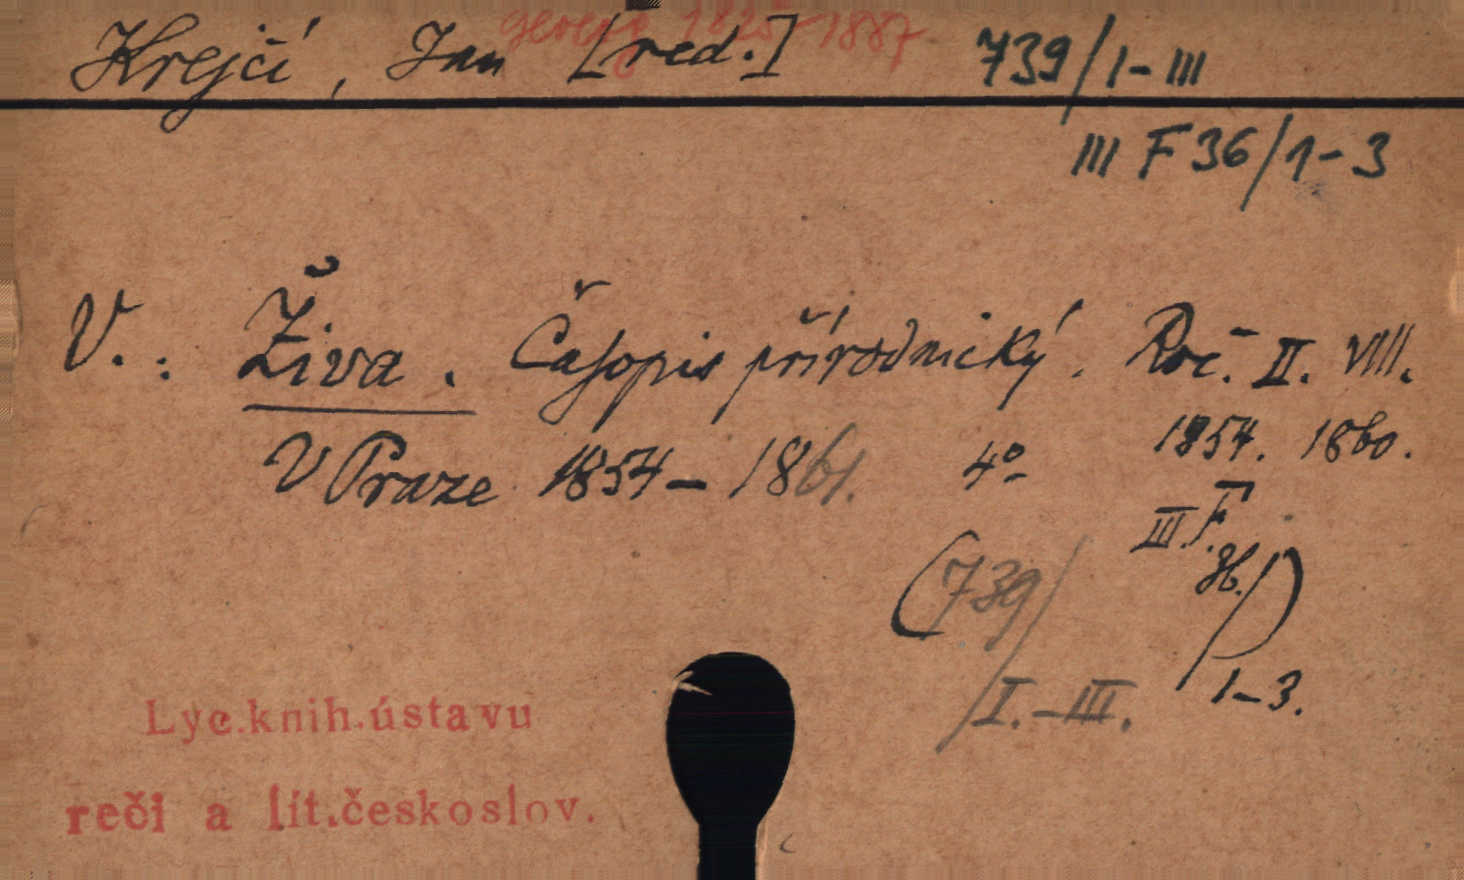 geolog 1825-1887
Krejčí, Jan [red.] 739/I-III
III F 36/1-3
V.: Živa. Časopis přírodnický. Roč. II. VIII.
1854. 1860.
V Praze 1854-1861. 4°
III F.
(739/I.-III. 36./1-3.)
Lyc.knih.ústavu
reči a lit.českoslov.